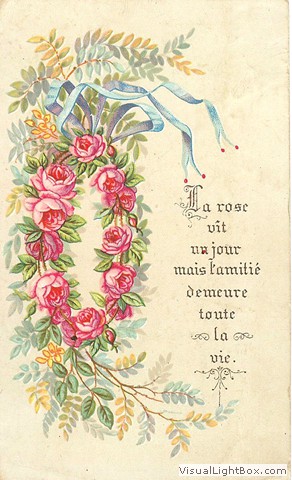 La rose
vît
un jour
mais l'amitié
demeure
toute
la
vie.
VisualLightBox.com